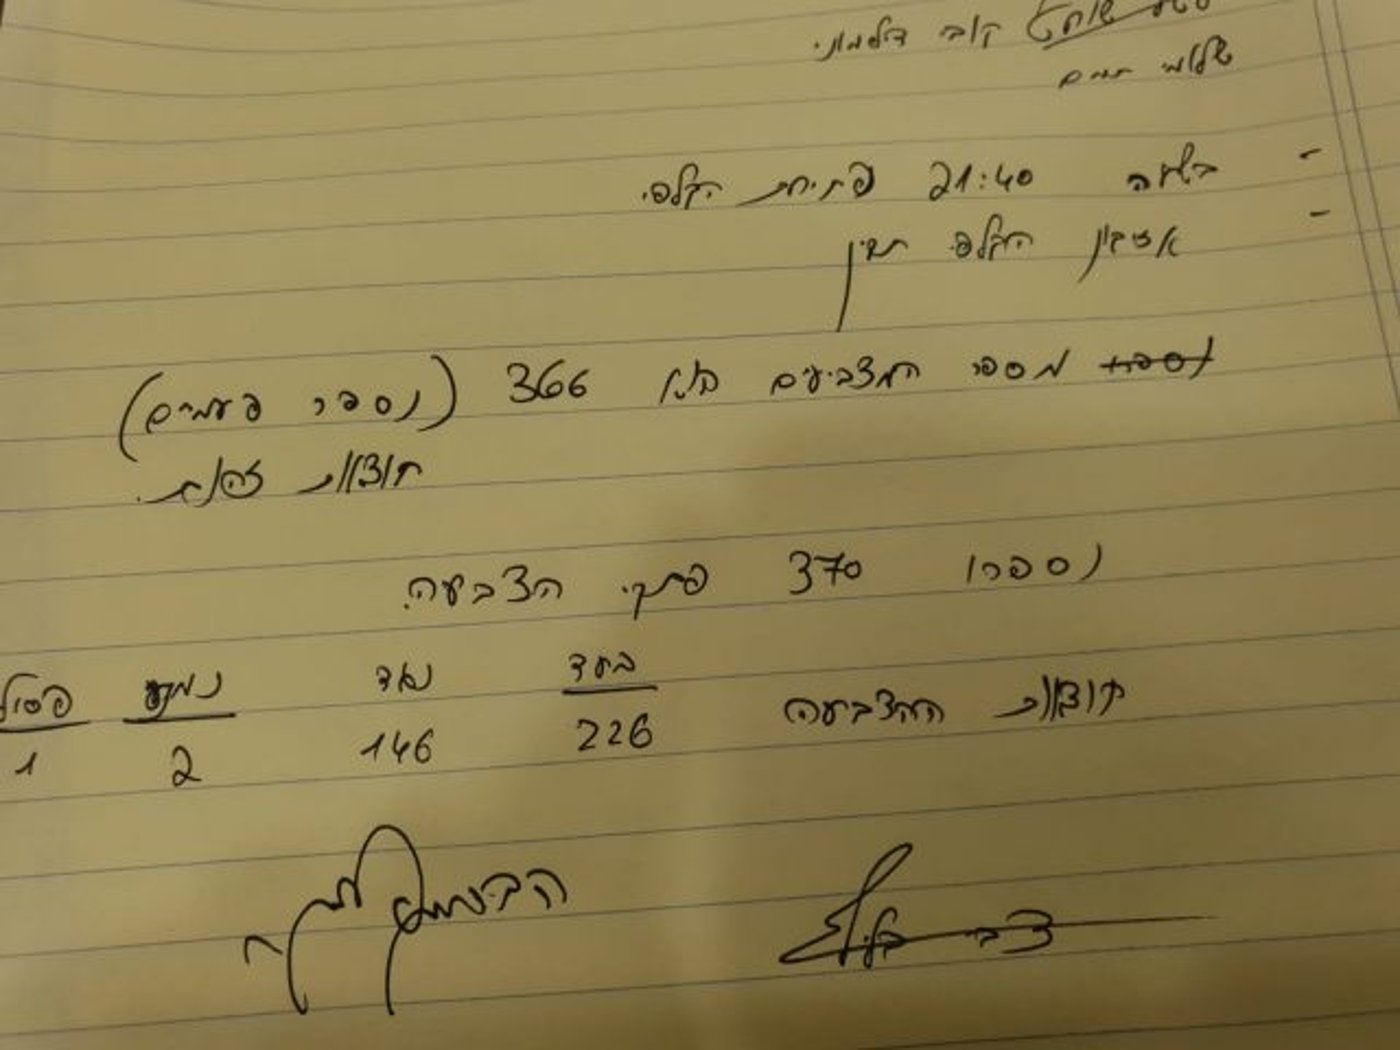 קובי דלמוני
שלומי תמם
- בשעה 21:40 פתיחת הקלפי.
- ארגון הקלפי תקין
נספרו מספר המצביעים הוא 366 (נספר פעמיים)
תוצאות זהות.
נספרו 370 פתקי הצבעה.
בעד נגד נמנע פסול
תוצאות ההצבעה 226 146 2 1
צבי